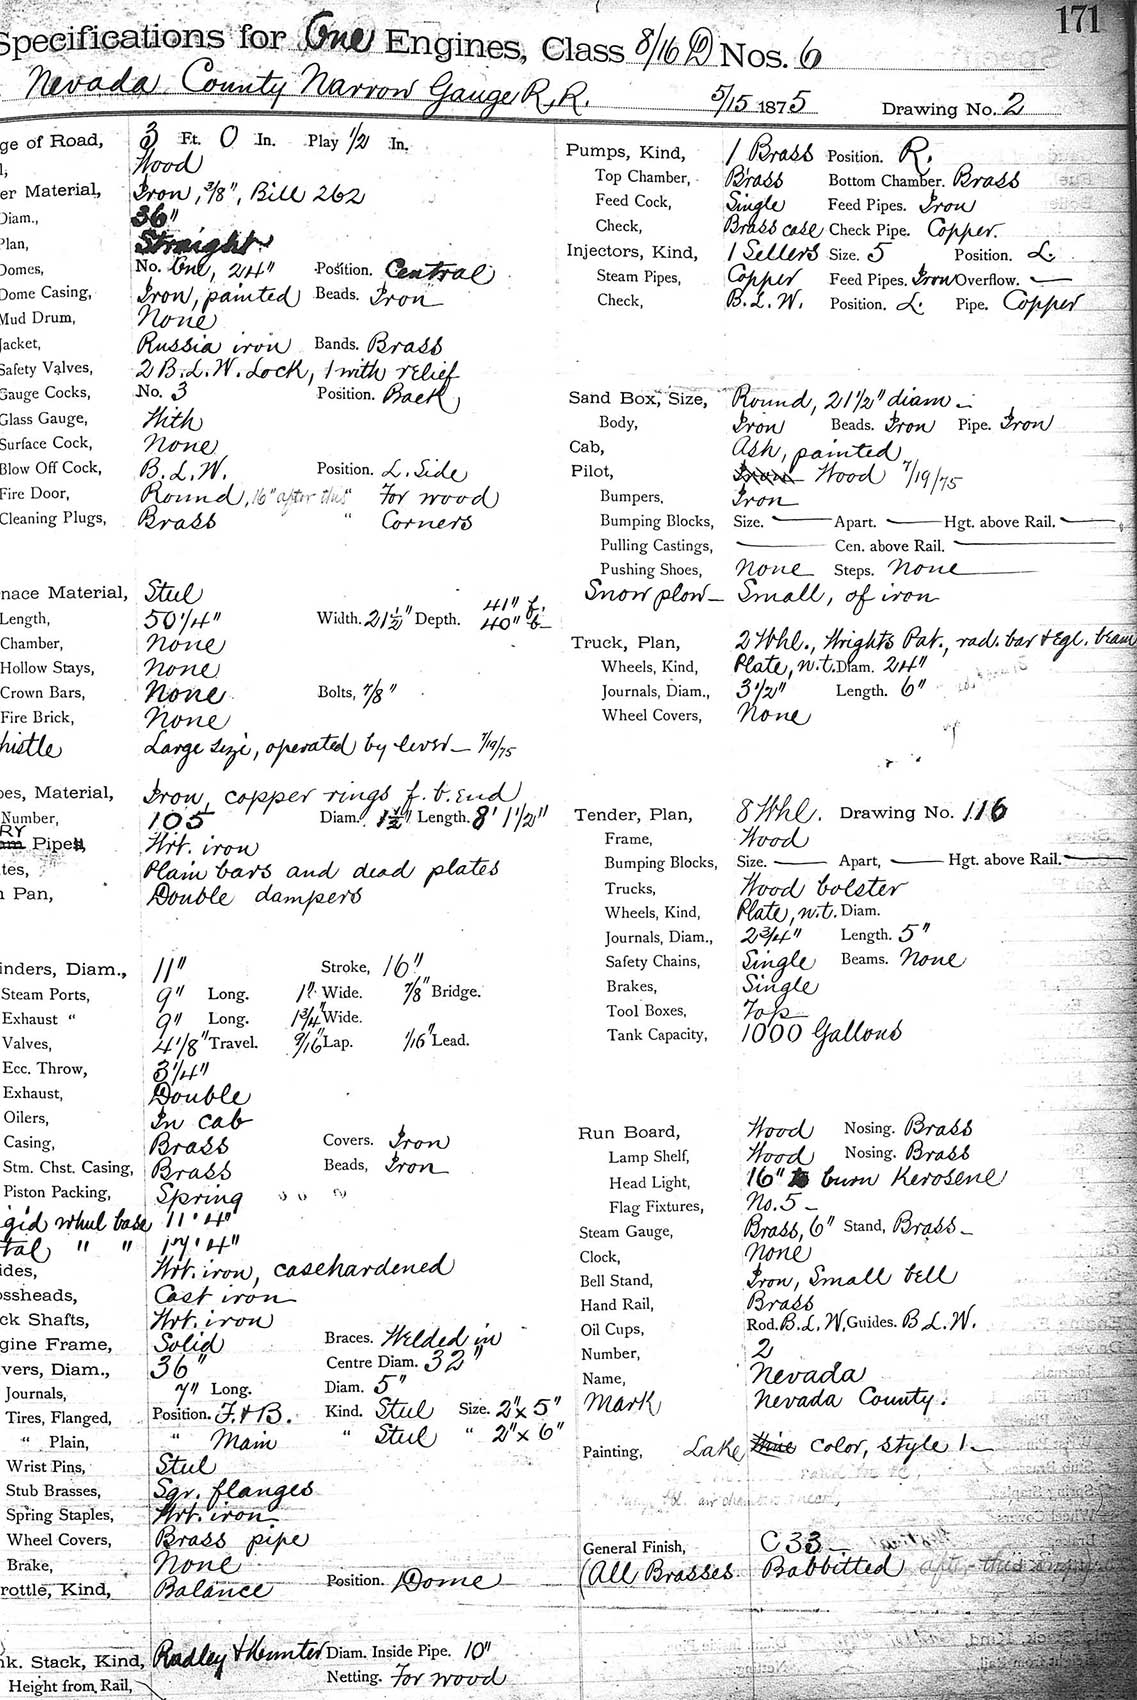 171
Specifications for One Engines, Class 8/16 D Nos. 6
Nevada County Narrow Gauge R.R. 5/15 1875 Drawing No. 2
ge of Road, 3 Ft. 0 In. Play 1/2 In.
l, Wood
er Material, Iron, 3/8", Bill 262
Diam., 36"
Plan, Straight
Domes, No. One, 24" Position. Central
Dome Casing, Iron, painted Beads. Iron
Mud Drum, None
Jacket, Russia iron Bands. Brass
Safety Valves, 2 B.L.W. Lock, 1 with relief
Gauge Cocks, No. 3 Position. Back
Glass Gauge, With
Surface Cock, None
Blow Off Cock, B.L.W. Position. L. Side
Fire Door, Round, 16" after this For wood
Cleaning Plugs, Brass " Corners
nace Material, Steel
Length, 50 1/4" Width. 21 1/2" Depth. 41" f. 40" b
Chamber, None
Hollow Stays, None
Crown Bars, None Bolts, 7/8"
Fire Brick, None
histle Large size, operated by lever 7/19/75
bes, Material, Iron, copper rings f. b. end
Number, 105 Diam. 1 1/2" Length. 8' 1 1/2"
RY Pipes, Wrt. iron
tes, Plain bars and dead plates
h Pan, Double dampers
inders, Diam., 11" Stroke, 16"
Steam Ports, 9" Long. 1" Wide. 7/8" Bridge.
Exhaust " 9" Long. 1 3/4" Wide.
Valves, 4 1/8" Travel. 9/16" Lap. 1/16" Lead.
Ecc. Throw, 3 1/4"
Exhaust, Double
Oilers, In cab
Casing, Brass Covers. Iron
Stm. Chst. Casing, Brass Beads, Iron
Piston Packing, Spring
gid wheel base 11' 4"
tal " " 17' 4"
ides, Wrt. iron, casehardened
ossheads, Cast iron
ck Shafts, Wrt. iron
gine Frame, Solid Braces. Welded in
vers, Diam., 36" Centre Diam. 32"
Journals, 7" Long. Diam. 5"
Tires, Flanged, Position. F. & B. Kind. Steel Size. 2" x 5"
" Plain, " Main " Steel " 2" x 6"
Wrist Pins, Steel
Stub Brasses, Sqr. flanges
Spring Staples, Wrt. iron
Wheel Covers, Brass pipe
Brake, None
rottle, Kind, Balance Position. Dome
nk. Stack, Kind, Radley & Hunter Diam. Inside Pipe. 10"
Height from Rail, Netting. For wood
Pumps, Kind, 1 Brass Position. R.
Top Chamber, Brass Bottom Chamber. Brass
Feed Cock, Single Feed Pipes. Iron
Check, Brass case Check Pipe. Copper.
Injectors, Kind, 1 Sellers Size. 5 Position. L.
Steam Pipes, Copper Feed Pipes. Iron Overflow. —
Check, B.L.W. Position. L. Pipe. Copper
Sand Box, Size, Round, 21 1/2" diam
Body, Iron Beads. Iron Pipe. Iron
Cab, Ash, painted
Pilot, Iron Wood 7/19/75
Bumpers, Iron
Bumping Blocks, Size. — Apart. — Hgt. above Rail. —
Pulling Castings, — Cen. above Rail. —
Pushing Shoes, None Steps. None
Snow plow — Small, of iron
Truck, Plan, 2 Whl., Wrights Pat., rad. bar & Eql. beam
Wheels, Kind, Plate, w.t. Diam. 24"
Journals, Diam., 3 1/2" Length. 6"
Wheel Covers, None
Tender, Plan, 8 Whl. Drawing No. 116
Frame, Wood
Bumping Blocks, Size. — Apart, — Hgt. above Rail. —
Trucks, Wood bolster
Wheels, Kind, Plate, w.t. Diam.
Journals, Diam., 2 3/4" Length. 5"
Safety Chains, Single Beams. None
Brakes, Single
Tool Boxes, Top
Tank Capacity, 1000 Gallons
Run Board, Wood Nosing. Brass
Lamp Shelf, Wood Nosing. Brass
Head Light, 16" to burn Kerosene
Flag Fixtures, No. 5
Steam Gauge, Brass, 6" Stand, Brass
Clock, None
Bell Stand, Iron, Small bell
Hand Rail, Brass
Oil Cups, Rod. B.L.W. Guides. B L.W.
Number, 2
Name, Nevada
Mark Nevada County.
Painting, Lake Wine color, style 1
General Finish, C 33
(All Brasses Babbitted after this